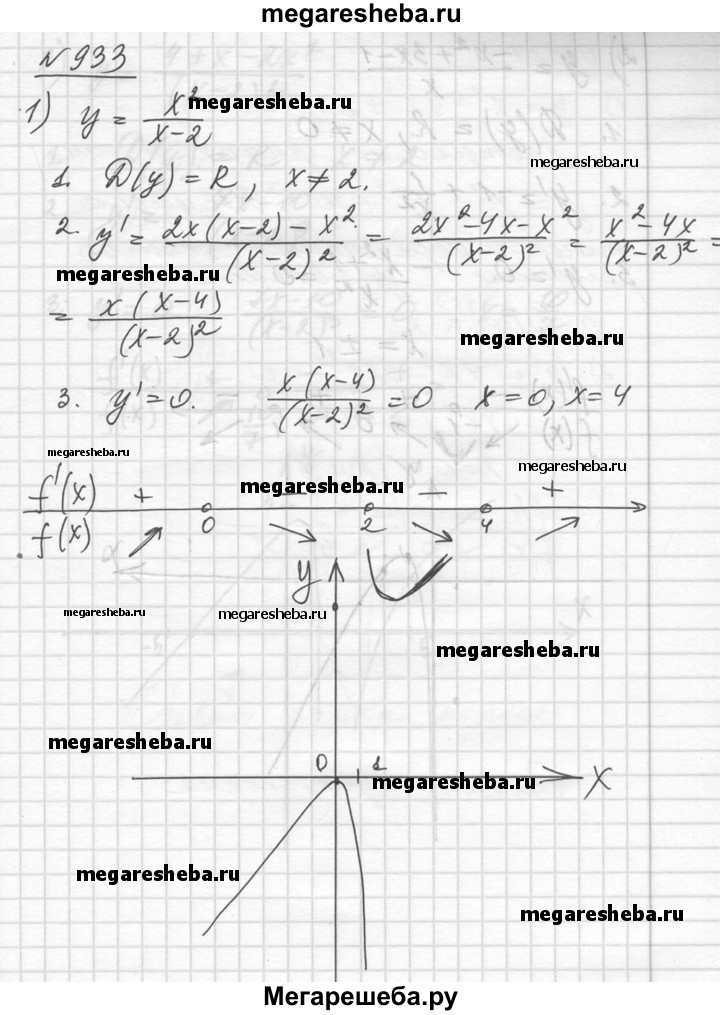 megaresheba.ru
N 933
1) y = x²/(x-2)
megaresheba.ru
megaresheba.ru
1. D(y) = R, x ≠ 2.
2. y' = (2x(x-2) - x²)/(x-2)² = (2x²-4x-x²)/(x-2)² = (x²-4x)/(x-2)² =
megaresheba.ru
= x(x-4)/(x-2)²
megaresheba.ru
3. y'=0. x(x-4)/(x-2)² = 0 x=0, x=4
megaresheba.ru
megaresheba.ru
megaresheba.ru
f'(x) + - - +
f(x) 0 2 4
y
megaresheba.ru
megaresheba.ru
megaresheba.ru
megaresheba.ru
0 1
megaresheba.ru
x
megaresheba.ru
megaresheba.ru
Мегарешеба.ру